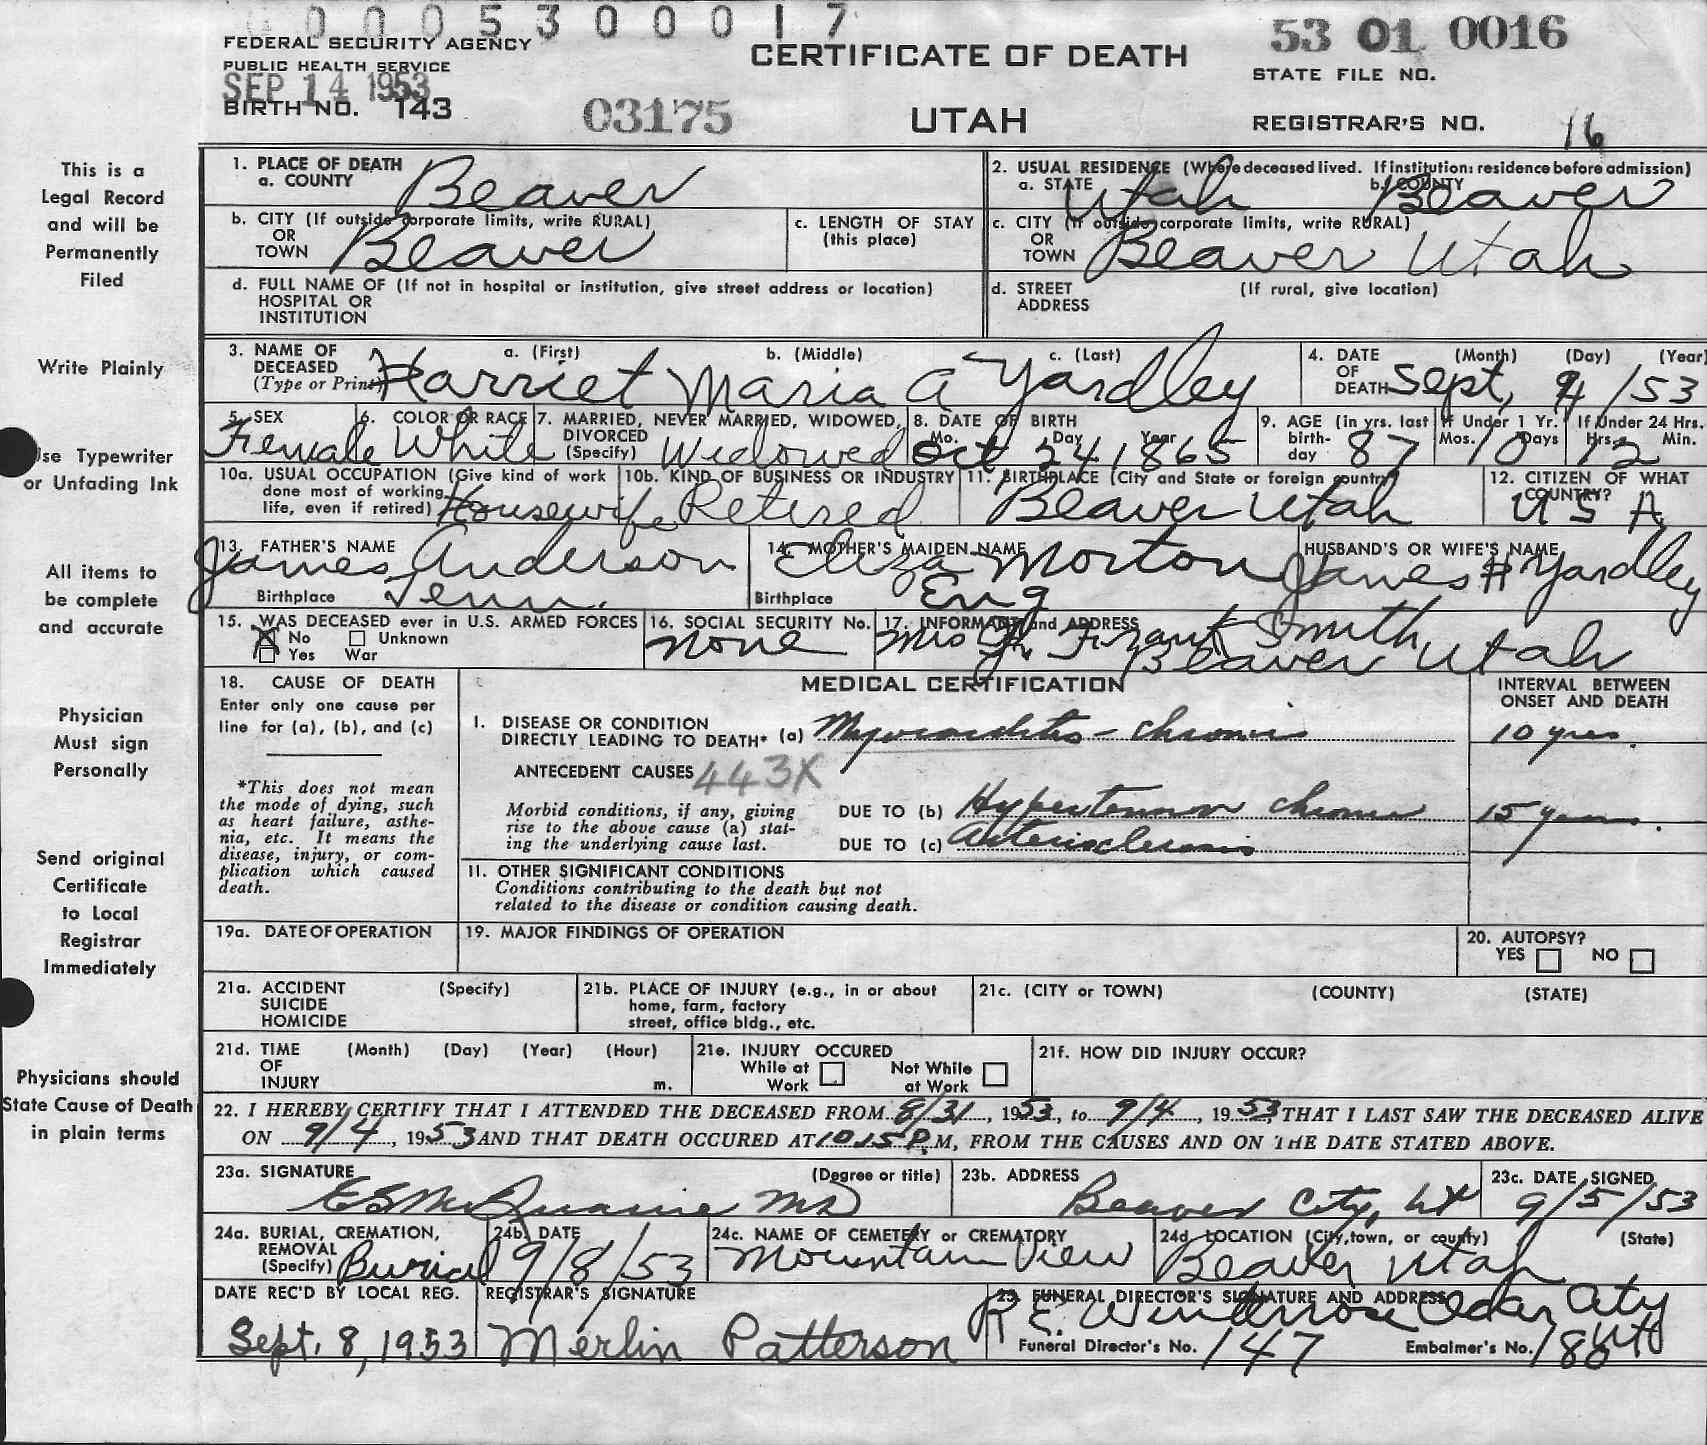 0005300017
FEDERAL SECURITY AGENCY
PUBLIC HEALTH SERVICE
SEP 14 1953
BIRTH NO. 143
03175
CERTIFICATE OF DEATH
UTAH
53 01 0016
STATE FILE NO.
REGISTRAR'S NO. 16
This is a
Legal Record
and will be
Permanently
Filed
Write Plainly
Use Typewriter
or Unfading Ink
All items to
be complete
and accurate
Physician
Must sign
Personally
Send original
Certificate
to Local
Registrar
Immediately
Physicians should
State Cause of Death
in plain terms
1. PLACE OF DEATH
a. COUNTY Beaver
2. USUAL RESIDENCE (Where deceased lived. If institution: residence before admission)
a. STATE Utah b. COUNTY Beaver
b. CITY (If outside corporate limits, write RURAL)
OR
TOWN Beaver
c. LENGTH OF STAY
(this place)
c. CITY (If outside corporate limits, write RURAL)
OR
TOWN Beaver Utah
d. FULL NAME OF (If not in hospital or institution, give street address or location)
HOSPITAL OR
INSTITUTION
d. STREET (If rural, give location)
ADDRESS
3. NAME OF DECEASED (Type or Print) a. (First) b. (Middle) c. (Last)
Harriet Maria A Yardley
4. DATE OF DEATH (Month) (Day) (Year)
Sept, 4/53
5. SEX
Female
6. COLOR OR RACE
White
7. MARRIED, NEVER MARRIED, WIDOWED,
DIVORCED
(Specify) Widowed
8. DATE OF BIRTH
Mo. Day Year
Oct 24 1865
9. AGE (in yrs. last birth-day 87
If Under 1 Yr. Mos. 10 Days
If Under 24 Hrs. Hrs. 12 Min.
10a. USUAL OCCUPATION (Give kind of work
done most of working
life, even if retired) Housewife
10b. KIND OF BUSINESS OR INDUSTRY
Retired
11. BIRTHPLACE (City and State or foreign country)
Beaver Utah
12. CITIZEN OF WHAT
COUNTRY?
U S A
13. FATHER'S NAME
James Anderson
Birthplace Tenn.
14. MOTHER'S MAIDEN NAME
Eliza Morton
Birthplace Eng
HUSBAND'S OR WIFE'S NAME
James H Yardley
15. WAS DECEASED ever in U.S. ARMED FORCES
X No Unknown
Yes War
16. SOCIAL SECURITY No.
none
17. INFORMANT and ADDRESS
Mrs Frank Smith
Beaver Utah
18. CAUSE OF DEATH
Enter only one cause per
line for (a), (b), and (c)
*This does not mean
the mode of dying, such
as heart failure, asthe-
nia, etc. It means the
disease, injury, or com-
plication which caused
death.
MEDICAL CERTIFICATION
INTERVAL BETWEEN
ONSET AND DEATH
I. DISEASE OR CONDITION
DIRECTLY LEADING TO DEATH* (a) Myocarditis - chronic 10 yrs.
ANTECEDENT CAUSES 443X
Morbid conditions, if any, giving
rise to the above cause (a) stat-
ing the underlying cause last.
DUE TO (b) Hypertension chronic 15 years.
DUE TO (c) Arteriosclerosis
II. OTHER SIGNIFICANT CONDITIONS
Conditions contributing to the death but not
related to the disease or condition causing death.
19a. DATE OF OPERATION
19. MAJOR FINDINGS OF OPERATION
20. AUTOPSY?
YES NO
21a. ACCIDENT (Specify)
SUICIDE
HOMICIDE
21b. PLACE OF INJURY (e.g., in or about
home, farm, factory
street, office bldg., etc.
21c. (CITY or TOWN) (COUNTY) (STATE)
21d. TIME (Month) (Day) (Year) (Hour)
OF
INJURY m.
21e. INJURY OCCURED
While at Work Not While at Work
21f. HOW DID INJURY OCCUR?
22. I HEREBY CERTIFY THAT I ATTENDED THE DECEASED FROM 8/31, 1953, to 9/4, 1953, THAT I LAST SAW THE DECEASED ALIVE
ON 9/4, 1953 AND THAT DEATH OCCURED AT 10 15 P.M, FROM THE CAUSES AND ON THE DATE STATED ABOVE.
23a. SIGNATURE (Degree or title)
MD
23b. ADDRESS
Beaver City, Ut
23c. DATE SIGNED
9/5/53
24a. BURIAL, CREMATION,
REMOVAL
(Specify) Burial
24b. DATE
9/8/53
24c. NAME OF CEMETERY or CREMATORY
Mountain View
24d. LOCATION (City, town, or county) (State)
Beaver Utah
DATE REC'D BY LOCAL REG.
Sept. 8, 1953
REGISTRAR'S SIGNATURE
Merlin Patterson
25. FUNERAL DIRECTOR'S SIGNATURE AND ADDRESS
Cedar City
Funeral Director's No. 147 Embalmer's No.